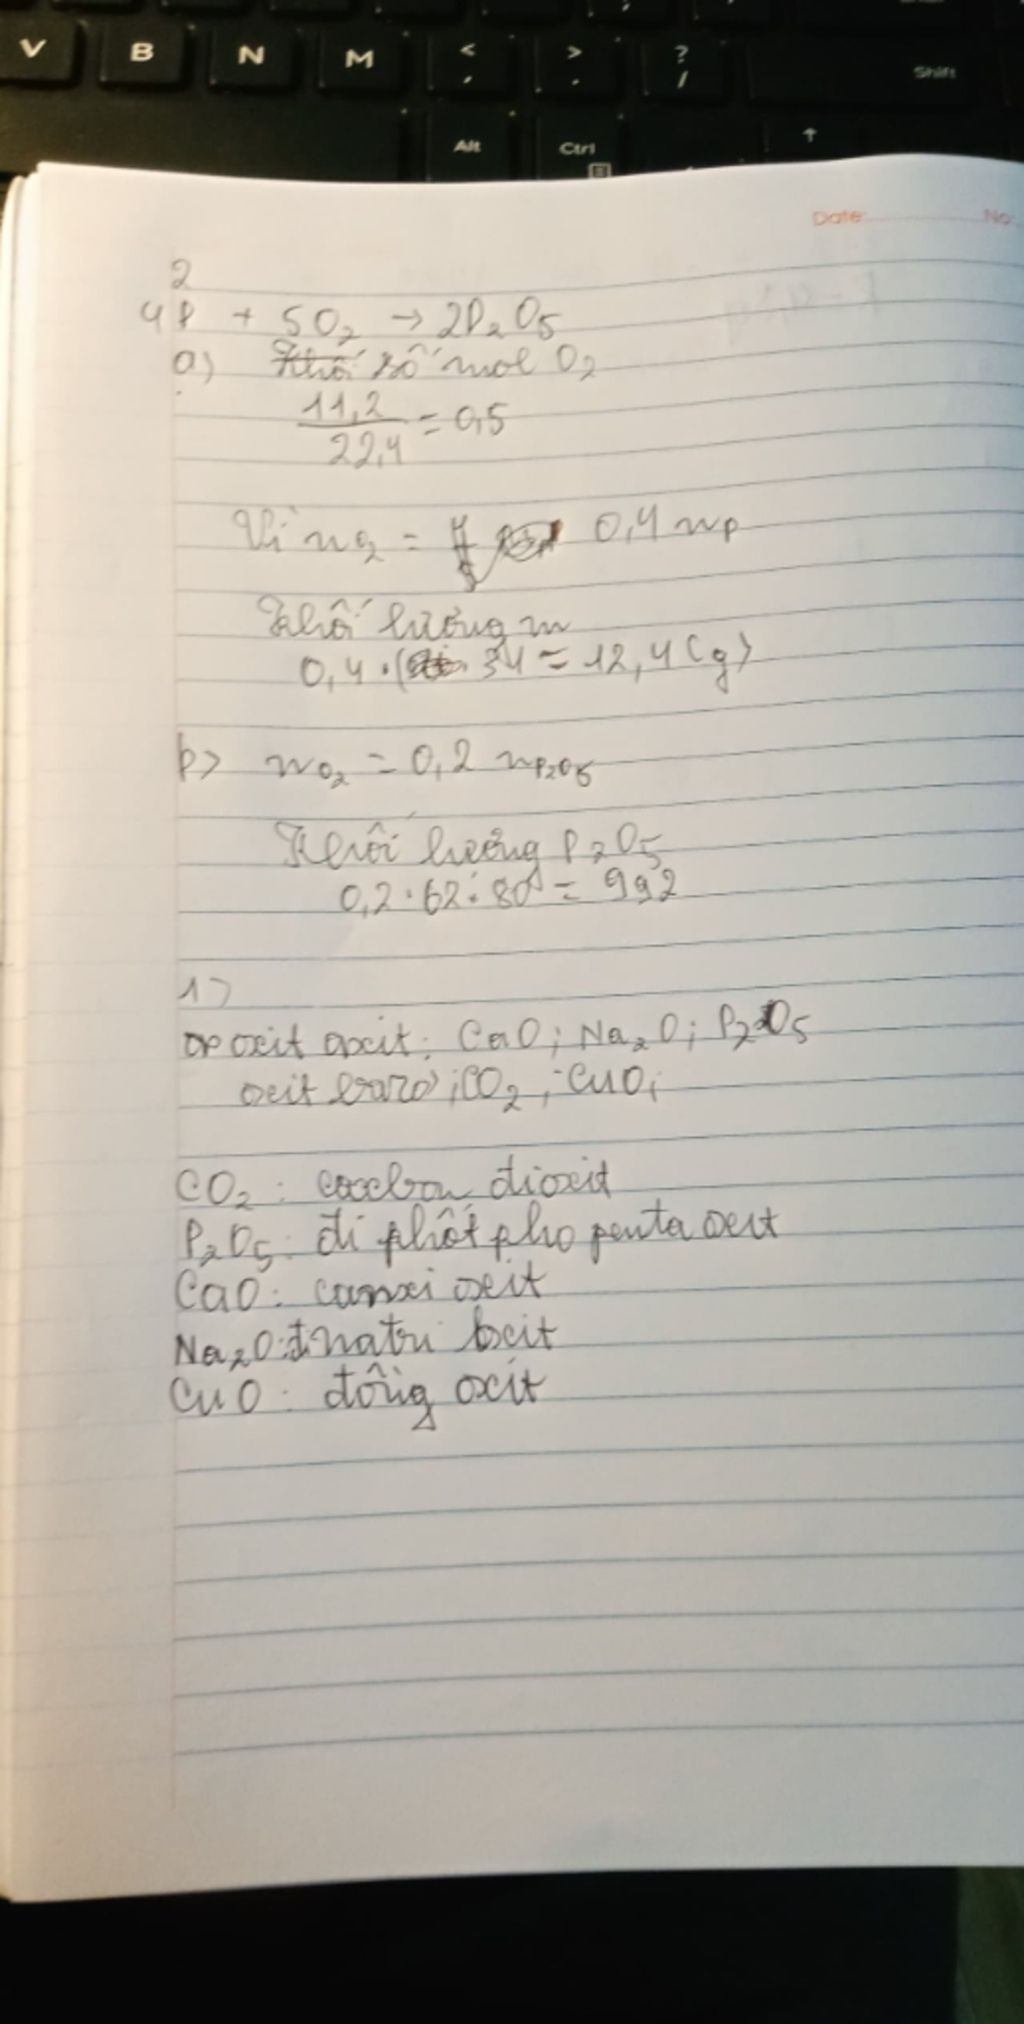 V B N M < , > . ? / Shift
Alt Ctrl ↑
Date No:
2
4P + 5O₂ → 2P₂O₅
a) số mol O₂
11,2 / 22,4 = 0,5
Vì nO₂ = 0,4 nP
Khối lượng m
0,4 . 31 = 12,4 (g)
b> nO₂ = 0,2 nP₂O₅
Khối lượng P₂O₅
0,2 . 62 . 80 = 992
1>
oxit axit: CaO; Na₂O; P₂O₅
oxit bazơ; CO₂; CuO;
CO₂: cacbon đioxit
P₂O₅: đi phốt pho penta oxit
CaO: canxi oxit
Na₂O: natri oxit
CuO: đồng oxit